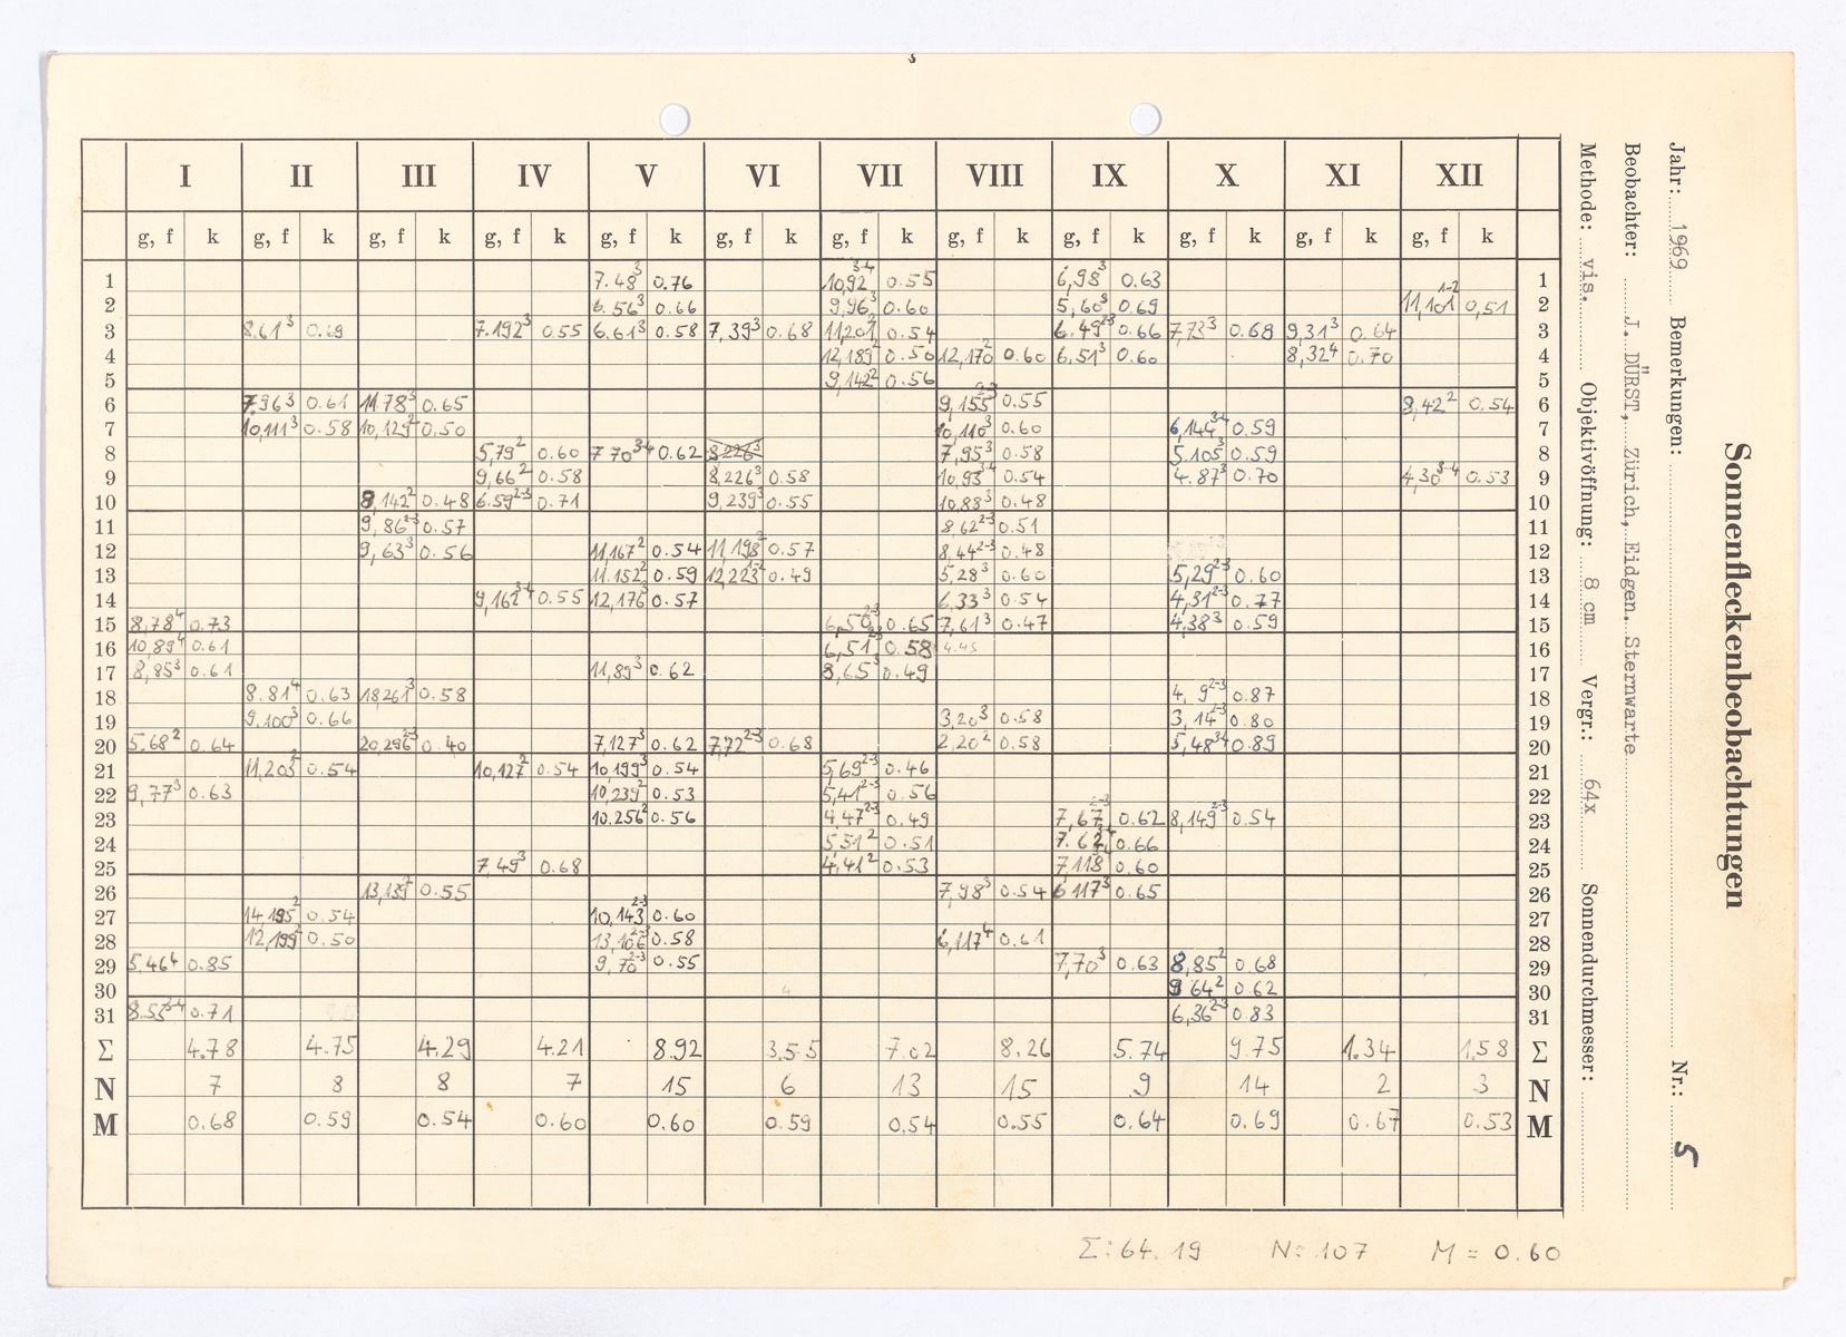 Sonnenfleckenbeobachtungen
Jahr: 1969 Bemerkungen: Nr.: 5
Beobachter: J. DÜRST, Zürich, Eidgen. Sternwarte
Methode: vis. Objektivöffnung: 8 cm Vergr.: 64x Sonnendurchmesser:
I II III IV V VI VII VIII IX X XI XII
g, f k g, f k g, f k g, f k g, f k g, f k g, f k g, f k g, f k g, f k g, f k g, f k
1 7.48³ 0.76 10,92³⁻⁴ 0.55 6,98³ 0.63 1
2 6.56³ 0.66 9,96³ 0.60 5,60³ 0.69 11,101¹⁻² 0,51 2
3 8.61³ 0.69 7.192³ 0.55 6.61³ 0.58 7,39³ 0.68 11,201² 0.54 6.49²⁻³ 0.66 7,73³ 0.68 9,31³ 0.64 3
4 12,189² 0.50 12,170² 0.60 6,51³ 0.60 8,32⁴ 0.70 4
5 9,142² 0.56 5
6 7.96³ 0.61 11.78³ 0.65 9,155²⁻³ 0.55 8,42² 0.54 6
7 10,111³ 0.58 10,129² 0.50 10,110³ 0.60 6,144³⁻⁴ 0.59 7
8 5,79² 0.60 7 70³⁻⁴ 0.62 8 226³ 7,95³ 0.58 5.105³ 0.59 8
9 9,66² 0.58 8,226³ 0.58 10,93³⁻⁴ 0.54 4.87³ 0.70 4,30³⁻⁴ 0.53 9
10 8,142² 0.48 6.59²⁻³ 0.71 9,239³ 0.55 10,88³ 0.48 10
11 9,86²⁻³ 0.57 8,62²⁻³ 0.51 11
12 9,63³ 0.56 11,167² 0.54 11,198² 0.57 8,44²⁻³ 0.48 12
13 11.152² 0.59 12,223¹⁻² 0.49 5,28³ 0.60 5,29²⁻³ 0.60 13
14 9,162³⁻⁴ 0.55 12,176³ 0.57 6,33³ 0.54 4,31²⁻³ 0.77 14
15 8,78⁴ 0.73 6,50²⁻³ 0.65 7,61³ 0.47 4,38³ 0.59 15
16 10,89⁴ 0.61 6,51²⁻³ 0.58 4.45 16
17 8,85³ 0.61 11,89³ 0.62 8,65³ 0.49 17
18 8.81⁴ 0.63 18261³ 0.58 4, 9²⁻³ 0.87 18
19 9.100³ 0.66 3,20³ 0.58 3,14²⁻³ 0.80 19
20 5.68² 0.64 20,296²⁻³ 0.40 7,127³ 0.62 7,72²⁻³ 0.68 2,20² 0.58 5,48³⁻⁴ 0.89 20
21 11,203² 0.54 10,127² 0.54 10,199³ 0.54 5,69²⁻³ 0.46 21
22 9,77³ 0.63 10,239² 0.53 5,41²⁻³ 0.56 22
23 10.256² 0.56 4,47²⁻³ 0.49 7,67²⁻³ 0.62 8,149²⁻³ 0.54 23
24 5,51² 0.51 7.62 0.66 24
25 7,49³ 0.68 4,41² 0.53 7,118 0.60 25
26 13,139² 0.55 7,98³ 0.54 6 117³ 0.65 26
27 14,195² 0.54 10,143²⁻³ 0.60 27
28 12,199² 0.50 13,106²⁻³ 0.58 6,117⁴ 0.61 28
29 5,46⁴ 0.85 9,70²⁻³ 0.55 7,70³ 0.63 8,85² 0.68 29
30 9 64² 0.62 30
31 8.55³⁻⁴ 0.71 6,36²⁻³ 0.83 31
Σ 4.78 4.75 4.29 4.21 8.92 3,55 7.02 8.26 5.74 9.75 1.34 1,58 Σ
N 7 8 8 7 15 6 13 15 9 14 2 3 N
M 0.68 0.59 0.54 0.60 0.60 0.59 0.54 0.55 0.64 0.69 0.67 0.53 M
Σ: 64.19 N: 107 M = 0.60